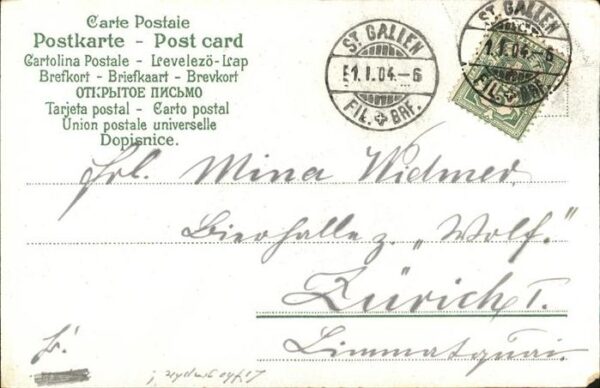 Carte Postale
Postkarte - Post card
Cartolina Postale - Levelező-Lap
Brefkort - Briefkaart - Brevkort
ОТКРЫТОЕ ПИСЬМО
Tarjeta postal - Carto postal
Union postale universelle
Dopisnice.
ST. GALLEN
1.I.04.-6
FIL. BRF.
ST. GALLEN
1.I.04.-6
FIL. BRF.
Frl. Mina Widmer,
Bierhalle z. „Wolf."
Zürich I.
Limmatquai.
fr.
Lithographie!